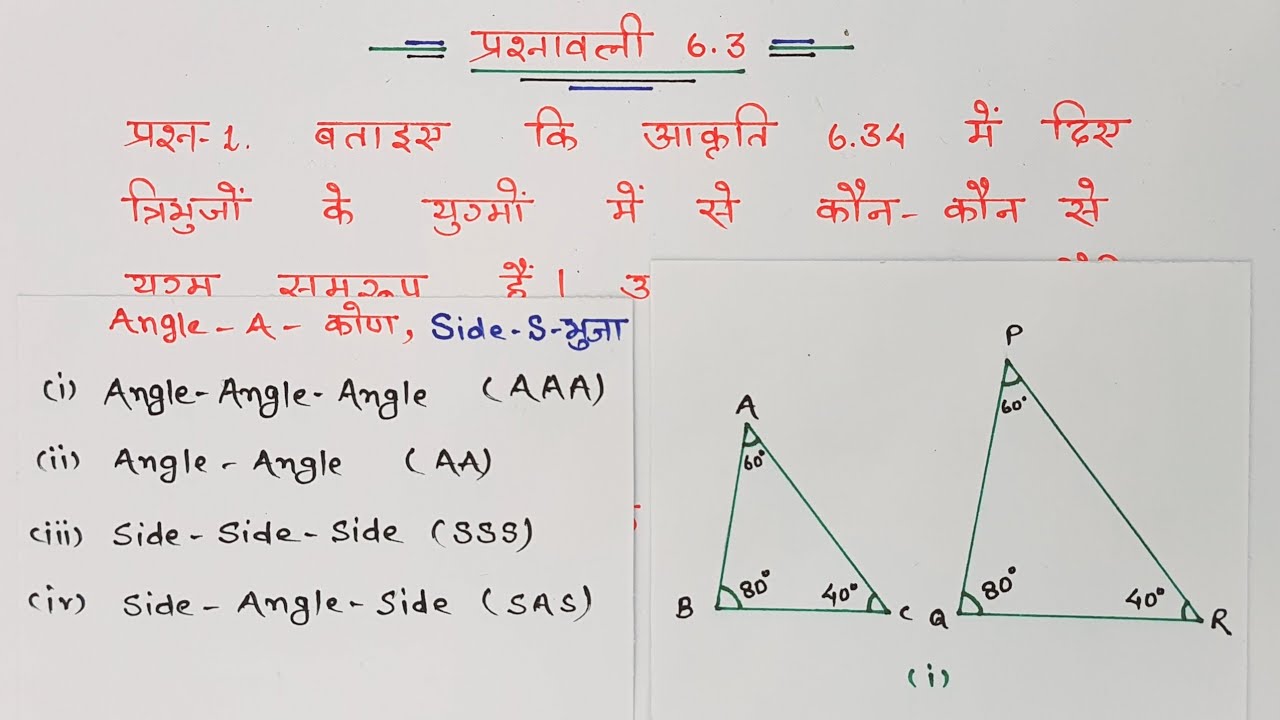 प्रश्नावली 6.3
प्रश्न-1. बताइस कि आकृति 6.34 में दिए
त्रिभुजों के युग्मों में से कौन-कौन से
युग्म समरूप हैं। उ
Angle-A-कोण, Side-S-भुजा
(i) Angle-Angle-Angle (AAA)
(ii) Angle-Angle (AA)
(iii) Side-Side-Side (SSS)
(iv) Side-Angle-Side (SAS)
A
60°
B
80°
40°
C
P
60°
Q
80°
40°
R
(i)